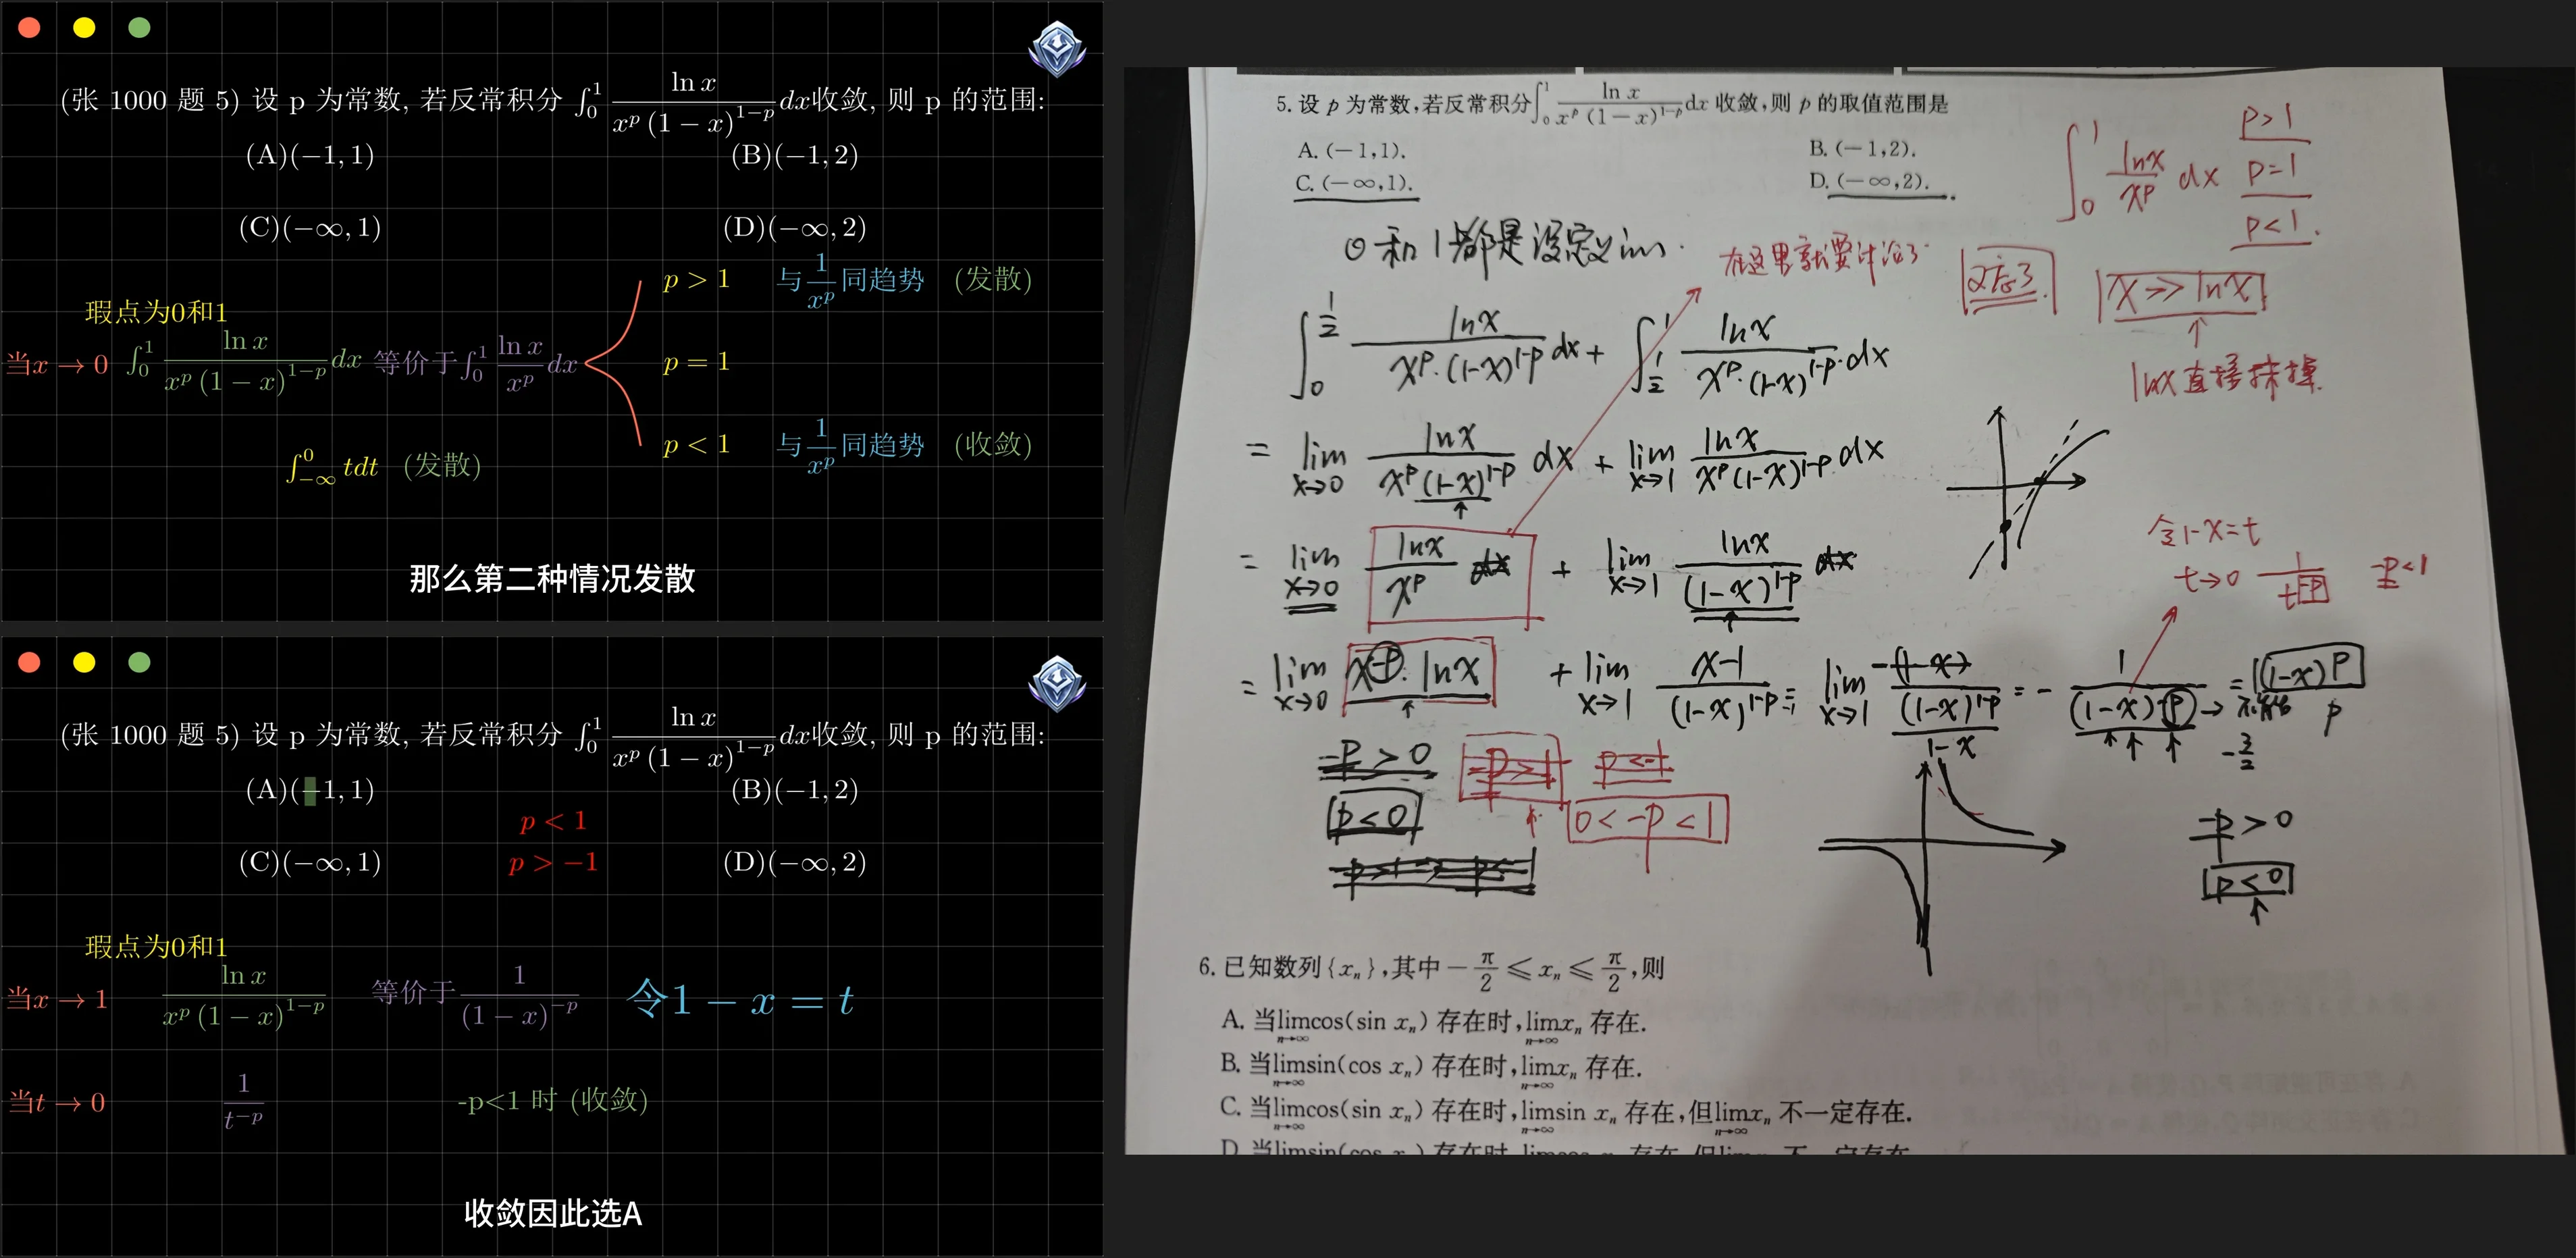 (张 1000 题 5) 设 p 为常数, 若反常积分 ∫₀¹ ln x / (x^p (1 − x)^{1−p}) dx收敛, 则 p 的范围:
(A)(−1, 1) (B)(−1, 2)
(C)(−∞, 1) (D)(−∞, 2)
瑕点为0和1
p > 1 与 1/x^p 同趋势 (发散)
当x → 0 ∫₀¹ ln x / (x^p (1 − x)^{1−p}) dx 等价于 ∫₀¹ ln x / x^p dx p = 1
p < 1 与 1/x^p 同趋势 (收敛)
∫_{−∞}^0 tdt (发散)
那么第二种情况发散
(张 1000 题 5) 设 p 为常数, 若反常积分 ∫₀¹ ln x / (x^p (1 − x)^{1−p}) dx收敛, 则 p 的范围:
(A)(−1, 1) (B)(−1, 2)
p < 1
(C)(−∞, 1) (D)(−∞, 2)
p > −1
瑕点为0和1
当x → 1 ln x / (x^p (1 − x)^{1−p}) 等价于 1 / (1 − x)^{−p} 令1 − x = t
当t → 0 1 / t^{−p} -p<1 时 (收敛)
收敛因此选A
5. 设 p 为常数,若反常积分∫₀¹ ln x / (x^p (1−x)^{1−p}) dx 收敛,则 p 的取值范围是
A. (−1,1). B. (−1,2).
C. (−∞,1). D. (−∞,2).
∫₀¹ lnx / x^p dx
p>1
p=1
p<1.
0和1都是没定义的.
在这里就要讨论了
x >> lnx
lnx直接抹掉.
∫₀^{1/2} lnx / (x^p·(1-x)^{1-p}) dx + ∫_{1/2}^1 lnx / (x^p·(1-x)^{1-p}) dx
= lim x→0 lnx / (x^p(1-x)^{1-p}) dx + lim x→1 lnx / (x^p(1-x)^{1-p}) dx
= lim x→0 lnx / x^p dx + lim x→1 lnx / (1-x)^{1-p} dx
令1-x=t
t→0 1 / t^{-p} -p<1
= lim x→0 x^{-p}·lnx + lim x→1 (x-1) / (1-x)^{1-p} = lim x→1 -(1-x) / (1-x)^{1-p} = - 1 / (1-x)^{-p} → = (1-x)^p
1-x
p
-3/2
-p>0 -p>1 p<-1
p<0 0<-p<1
-p>0
p<0
6. 已知数列{xₙ},其中−π/2≤xₙ≤π/2,则
A. 当lim n→∞ cos(sin xₙ)存在时,lim n→∞ xₙ 存在.
B. 当lim n→∞ sin(cos xₙ)存在时,lim n→∞ xₙ 存在.
C. 当lim n→∞ cos(sin xₙ)存在时,lim n→∞ sin xₙ 存在,但lim n→∞ xₙ 不一定存在.
D. 当limsin(cos xₙ)存在时,limcos xₙ 存在,但lim xₙ 不一定存在.